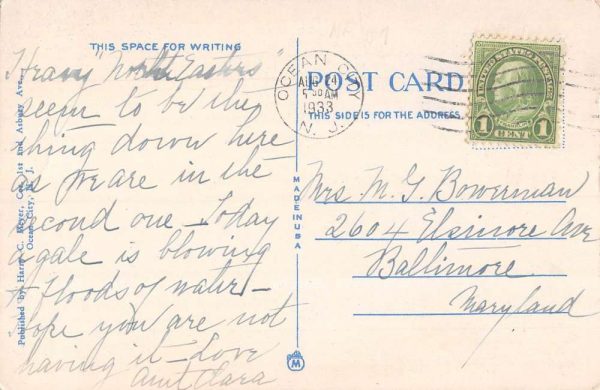 THIS SPACE FOR WRITING
Heavy "North Easters"
seem to be the
thing down here
as we are in the
second one - Today
a gale is blowing
& floods of water -
hope you are not
having it - Love
Aunt Clara
Published by Harry C. Meyer, Cor. 1st and Asbury Ave.,
Ocean City, N. J.
MADE IN USA
M
POST CARD
THIS SIDE IS FOR THE ADDRESS
OCEAN CITY
AUG 24
5 30 AM
1933
N. J.
UNITED STATES POSTAGE
1 CENT 1
Mrs. M. G. Bowerman
2604 Elsinore Ave
Baltimore
Maryland